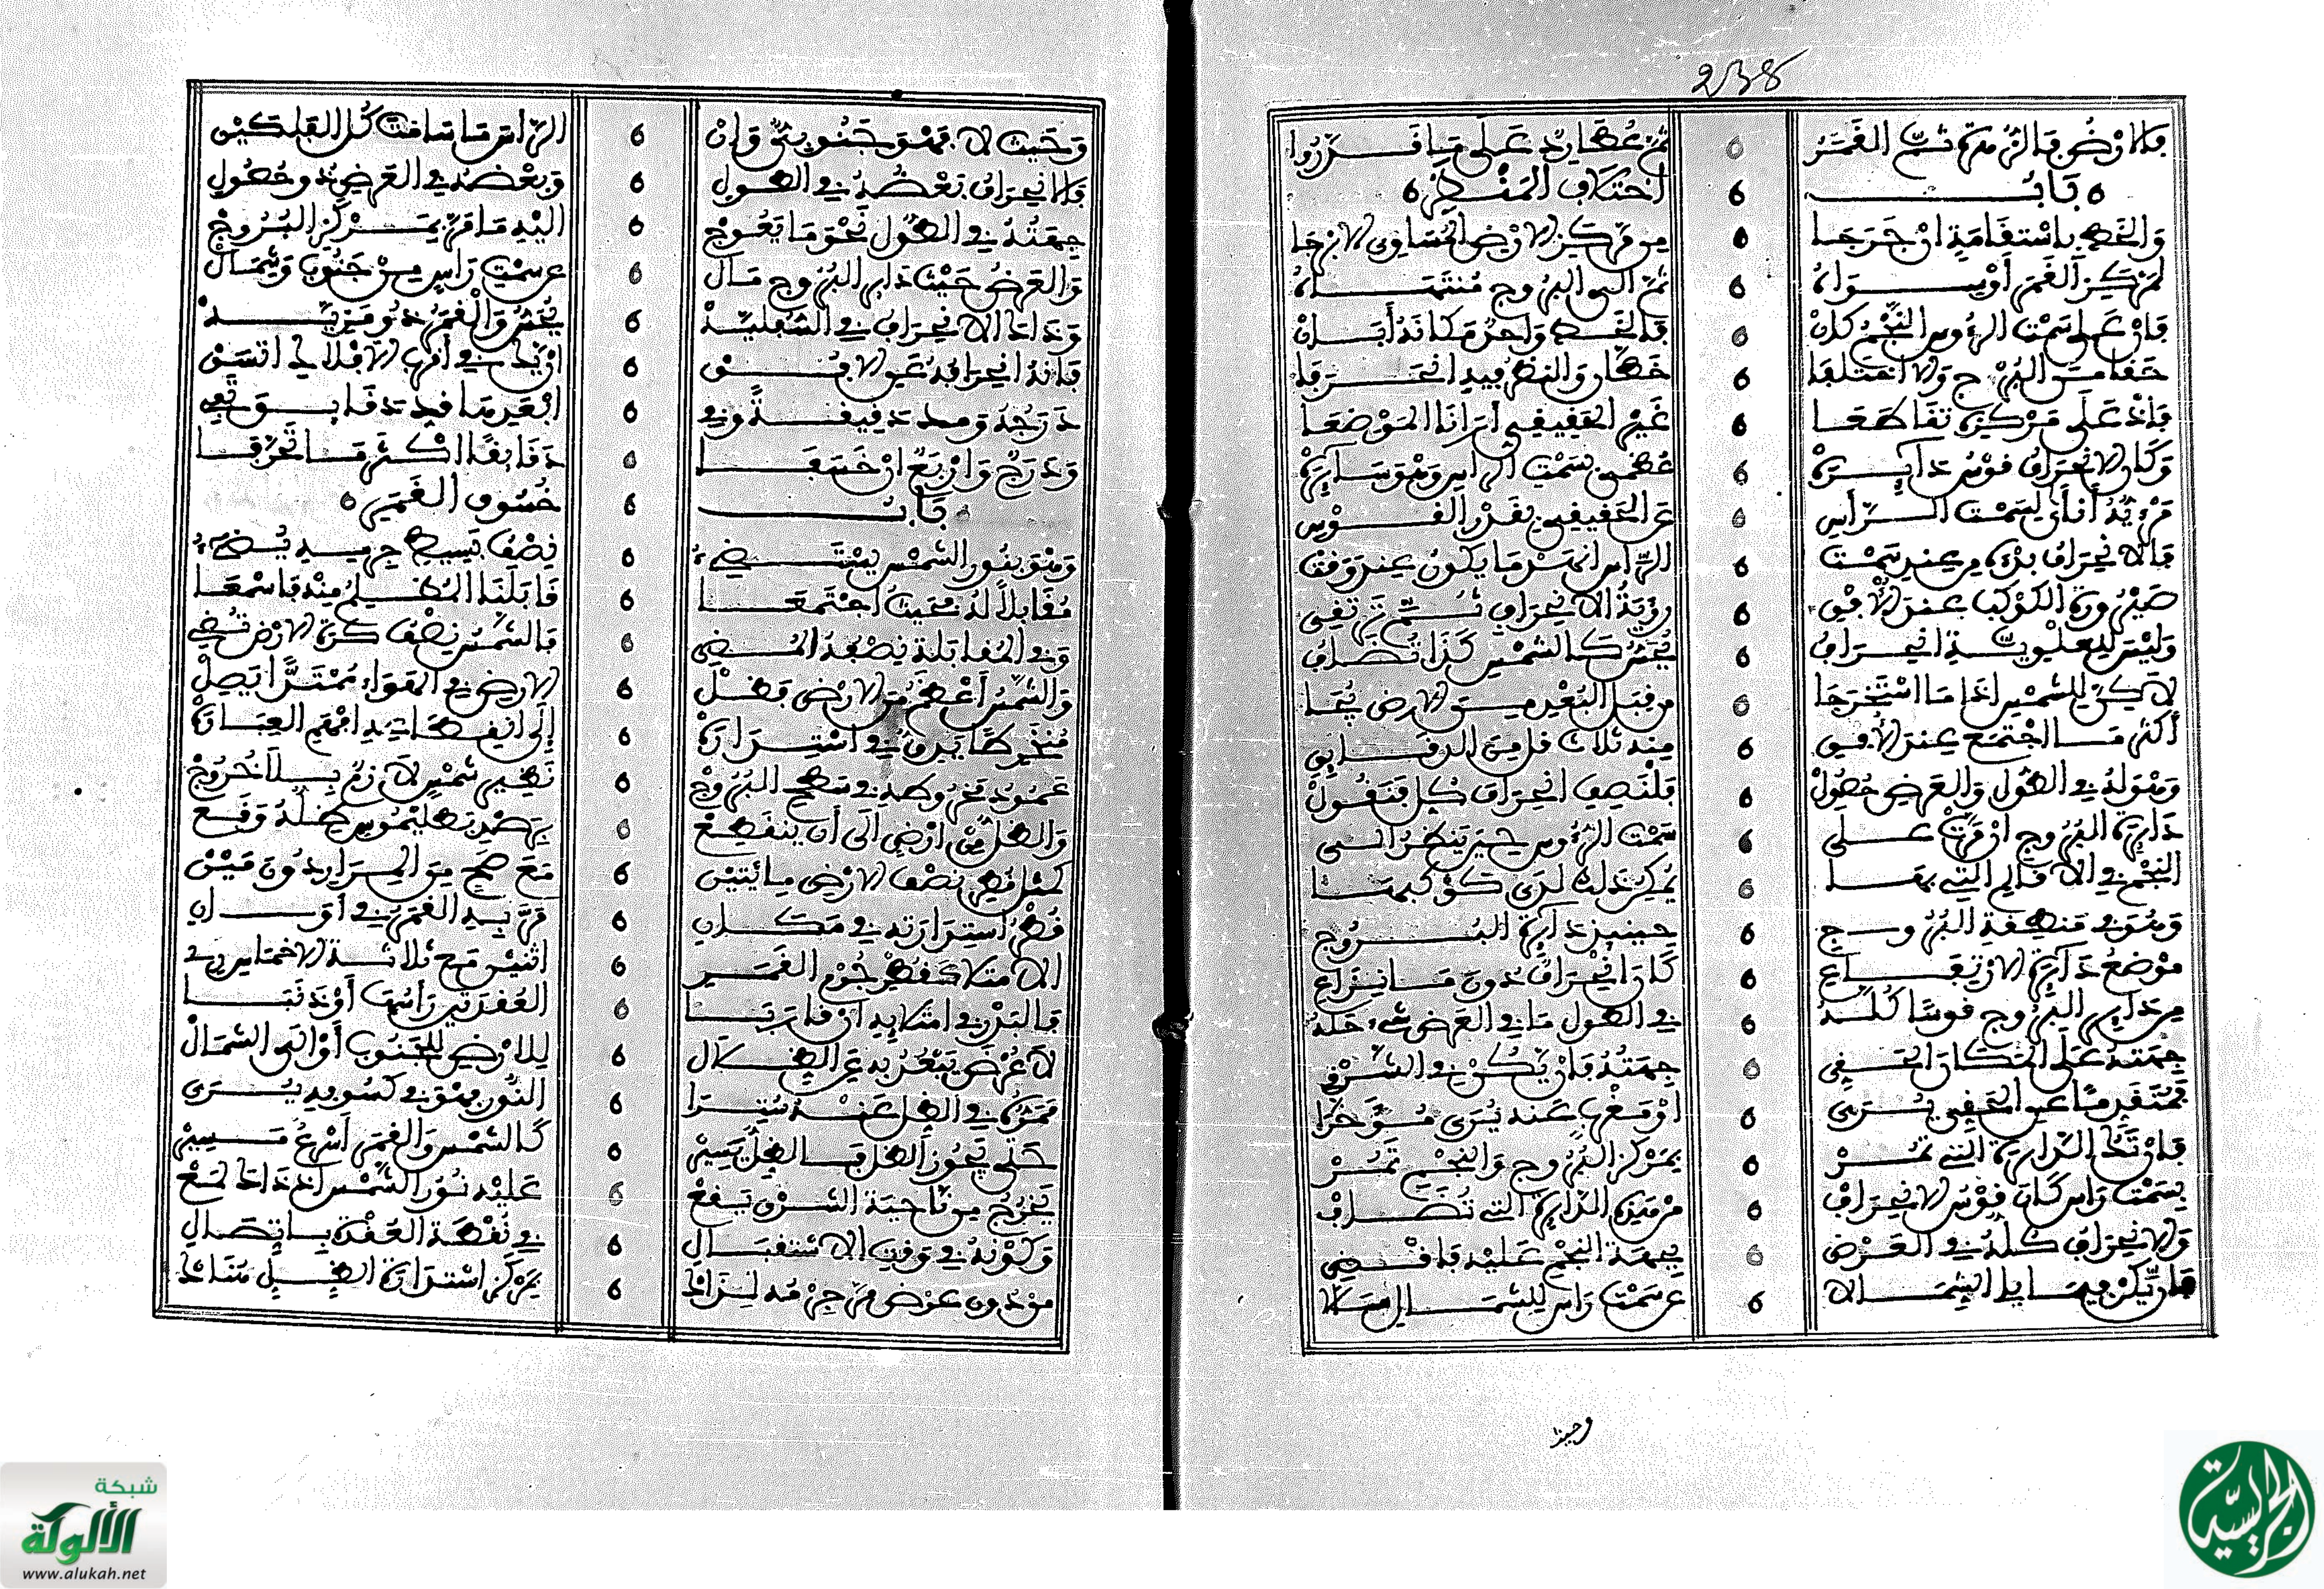 238
فالارض فالزهرة ثم القمر ثم عطارد على ما قرروا
باب اختلاف المنظر
والخط باستقامة ان خرجا من مركز الارض المساوي الارجا
لمركز القمر او سواه ثم الى البروج منتهاه
فان على سمت الرءوس النجم كان فالخط واحد مكانه أبان
حقا من البرج والا اختلفا خطان والنظر فيه انحرفا
فاذ على مركزه تقاطعا غير الحقيقي أرانا الموضعا
وكان الانحراف قوس دائره عظمى بسمت الراس وهو سائره
مرءيه أنأى لسمت الراس عن الحقيقي بقدر القوس
فالانحراف بدؤه من عند سمت الراس اخر ما يكون عند وقت
صيرورة الكوكب عند الافق ورؤية الانحراف ثم ترتقي
وليس للعلوية انحراف يحس كالشمس كذا تضاف
لكن للشمس اذا ما استخرجا من قبل البعد من الارض يجا
أكثر ما اجتمع عند الافق منه ثلاث قل من الدقائق
وهو له في الطول والعرض حصول فلنصف انحراف كل فنقول
دائرة البروج ان مرت على سمت الرءوس حين ينظر الى
النجم في الاقاليم التي بها يمكن ذلك لدى كوكبها
وهو في منطقة البروج حينئذ دائرة البروج
موضع دائرة الارتفاع كان انحراف دون ما نزاع
من دائر البروج قوسا كله في الطول ما في العرض شيء حله
جهته على المكان الحقيقي جهته فان يكن في الشرق
فمتقدما عن الحقيقي يرى أو مغرب عنه يرى مؤخرا
فان تك الدائرة التي تمر بمركز البروج والنجم تمر
بسمت راس كان قوس الانحراف من هذه الدائرة التي تضاف
والانحراف كله في العرض بجهة النجم عليه فاقض
فان يكن فيما يلي الشمالا عن سمت راس للشمال مالا
وحيث
وحيث لا فهو جنوبي وان الراس ما سامت كل الفلكين
فالانحراف بعضه في الطول وبعضه في العرض ذو حصول
جهته في الطول نحو ما يعوج اليه ما قرب مركز البروج
والعرض حيث دائر البروج مال عن سمت راس من جنوب وشمال
وذا الانحراف في السفلية يحس والقمر ذو مزيه
فانه انحرافه عن الافق اذ يك في أقرب الافلاك اتسق
درجة ومد دقيقة وفي ابعد ما فيه دقائق تفي
ودرج واربع ان خسفا دقائقا اكثر ما تحرفا
باب خسوف القمر
وهو بنور الشمس يستضيء نصف بسيط جرمه يضيء
مقابلا له بحيث اجتمعا قابلنا المظلم منه فاسمعا
وفي المقابلة نصفه المضي فالشمس نصف كرة الارض تضي
والشمس أعظم من الارض فظل الارض في الهواء ممتدا يصل
منخرطا يدق في استداره الى انقطاعه افهم العباره
عمود مخروطه في سطح البروج نظير شمس لازم بلا خروج
والظل من ارض الى أن ينقطع برصد بطليموس ظله وقع
كمثل قطر نصف الارض مائتين مع صح من المرار دون مين
قطر استدارته في مكان مر به القمر في أوان
الامتلا كقطر جرم القمر اثنين مع ثلاثة الاخماس
فالبدر في امتلائه ان قاربا العقدتين راسها أو ذنبا
لا عرض يبعد به عن الظلال للارض للجنوب أو الى الشمال
فهو في الظل عنه سترا النور فهو في كسوفه يرى
حتى يجوز الظل فالظل يسير كالشمس والقمر أسرع مسير
يخرج من ناحية الشرق تقع عليه نور الشمس اذ ذاك لمع
وكونه في وقت الاستقبال في نقطة العقدة باتصال
مؤذن عرض مر جرمه لذاك بمركز استدارة الظل هناك
شبكة
الألوكة
www.alukah.net